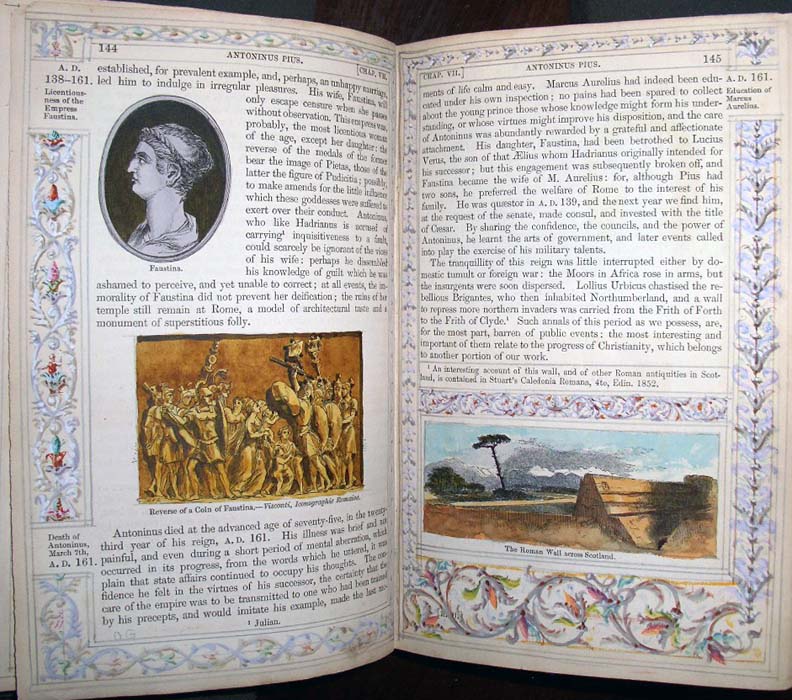 144
ANTONINUS PIUS.
[CHAP. VII.
A. D.
138–161.
Licentious-
ness of the
Empress
Faustina.
established, for prevalent example, and, perhaps, an unhappy marriage,
led him to indulge in irregular pleasures. His wife, Faustina, will
only escape censure when she passes
without observation. This empress was,
probably, the most licentious woman
of the age, except her daughter: the
reverse of the medals of the former
bear the image of Pietas, those of the
latter the figure of Pudicitia; possibly,
to make amends for the little influence
which these goddesses were suffered to
exert over their conduct. Antoninus,
who like Hadrianus is accused of
carrying¹ inquisitiveness to a fault,
could scarcely be ignorant of the vices
of his wife; perhaps he dissembled
his knowledge of guilt which he was
Faustina.
ashamed to perceive, and yet unable to correct; at all events, the im-
morality of Faustina did not prevent her deification; the ruins of her
temple still remain at Rome, a model of architectural taste and a
monument of superstitious folly.
Reverse of a Coin of Faustina.—Visconti, Iconographie Romaine.
Death of
Antoninus,
March 7th,
A. D. 161.
Antoninus died at the advanced age of seventy-five, in the twenty-
third year of his reign, A. D. 161. His illness was brief and not
painful, and even during a short period of mental aberration, which
occurred in its progress, from the words which he uttered, it was
plain that state affairs continued to occupy his thoughts. The con-
fidence he felt in the virtues of his successor, the certainty that the
care of the empire was to be transmitted to one who had been trained
by his precepts, and would imitate his example, made the last mo-
¹ Julian.
[CHAP. VII.
ANTONINUS PIUS.
145
ments of life calm and easy. Marcus Aurelius had indeed been edu-
cated under his own inspection; no pains had been spared to collect
about the young prince those whose knowledge might form his under-
standing, or whose virtues might improve his disposition, and the care
of Antoninus was abundantly rewarded by a grateful and affectionate
attachment. His daughter, Faustina, had been betrothed to Lucius
Verus, the son of that Ælius whom Hadrianus originally intended for
his successor; but this engagement was subsequently broken off, and
Faustina became the wife of M. Aurelius: for, although Pius had
two sons, he preferred the welfare of Rome to the interest of his
family. He was questor in A. D. 139, and the next year we find him,
at the request of the senate, made consul, and invested with the title
of Cæsar. By sharing the confidence, the councils, and the power of
Antoninus, he learnt the arts of government, and later events called
into play the exercise of his military talents.
The tranquillity of this reign was little interrupted either by do-
mestic tumult or foreign war: the Moors in Africa rose in arms, but
the insurgents were soon dispersed. Lollius Urbicus chastised the re-
bellious Brigantes, who then inhabited Northumberland, and a wall
to repress more northern invaders was carried from the Frith of Forth
to the Frith of Clyde.¹ Such annals of this period as we possess, are,
for the most part, barren of public events: the most interesting and
important of them relate to the progress of Christianity, which belongs
to another portion of our work.
A. D. 161.
Education of
Marcus
Aurelius.
¹ An interesting account of this wall, and of other Roman antiquities in Scot-
land, is contained in Stuart's Caledonia Romana, 4to, Edin. 1852.
The Roman Wall across Scotland.